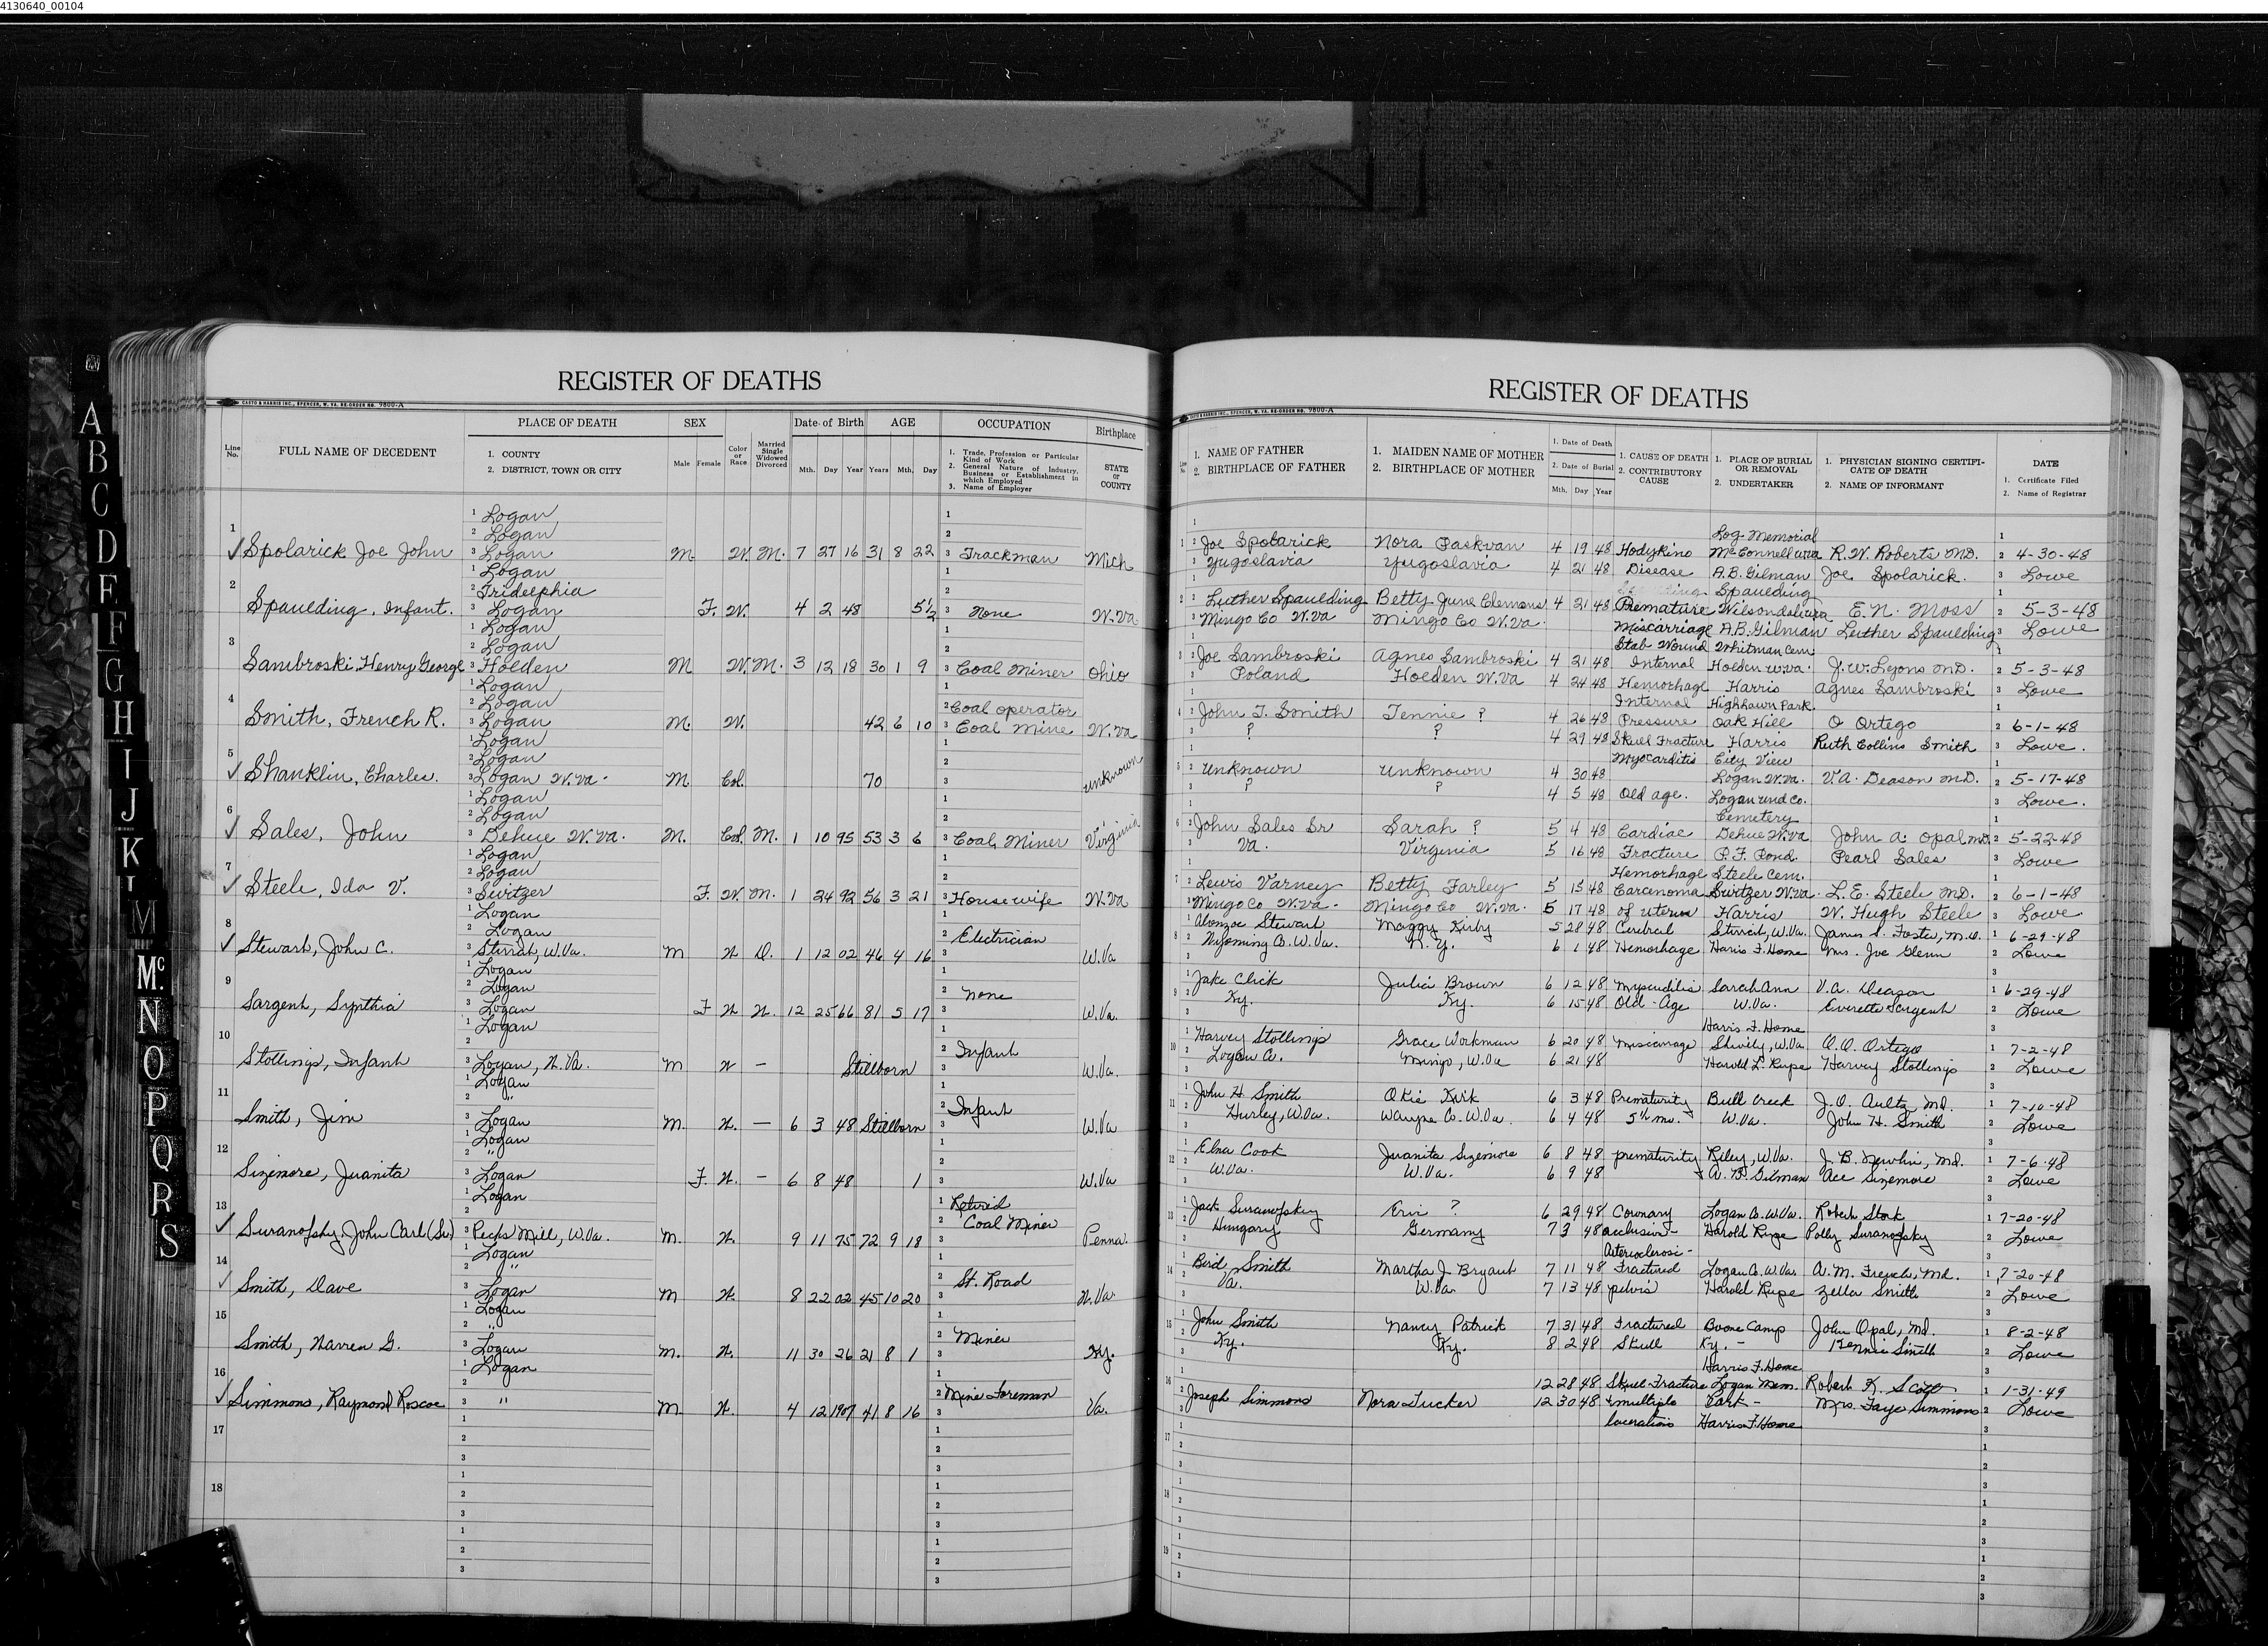 4130640_00104
A
B
C
D
E
F
G
H
I
J
K
L
M
Mc.
N
O
P
Q
R
S
REGISTER OF DEATHS
CASTO & HARRIS INC., SPENCER, W. VA. RE-ORDER NO. 9800-A
Line No. FULL NAME OF DECEDENT PLACE OF DEATH 1. COUNTY 2. DISTRICT, TOWN OR CITY SEX Male Female Color or Race Married Single Widowed Divorced Date of Birth Mth. Day Year AGE Years Mth. Day OCCUPATION 1. Trade, Profession or Particular Kind of Work 2. General Nature of Industry, Business or Establishment in which Employed 3. Name of Employer Birthplace STATE or COUNTY
1 Logan
2 Logan
1 Spolarick Joe John 3 Logan M W. M. 7 27 16 31 8 22 3 Trackman Mich
1 Logan
2 Tridelphia
2 Spaulding, Infant. 3 Logan F. W. 4 2 48 5½ 3 None W.Va
1 Logan
2 Logan
3 Sambroski, Henry George 3 Holden M W. M. 3 12 18 30 1 9 3 Coal Miner Ohio
1 Logan
2 Logan 2 Coal operator
4 Smith, French R. 3 Logan M. W. 42 6 10 3 Coal Mine W.Va
1 Logan
2 Logan
5 Shanklin, Charles. 3 Logan W.Va. M. Col. 70 unknown
1 Logan
2 Logan
6 Sales, John 3 Dehue W.Va. M. Col. M. 1 10 95 53 3 6 3 Coal Miner Virginia
1 Logan
2 Logan
7 Steele, Ida V. 3 Switzer F. W. M. 1 24 92 56 3 21 3 Housewife W.Va
1 Logan
2 Logan 2 Electrician
8 Stewart, John C. 3 Stirrat, W.Va. M W D. 1 12 02 46 4 16 W.Va
1 Logan
2 Logan 2 None
9 Sargent, Synthia 3 Logan F W W. 12 25 66 81 5 17 W.Va.
1 Logan
2 Infant
10 Stollings, Infant 3 Logan, W.Va. M W — Stillborn W.Va.
1 Logan
2 " 2 Infant
11 Smith, Jim 3 Logan M. W. — 6 3 48 Stillborn W.Va
1 Logan
2 "
12 Sizemore, Juanita 3 Logan F. W. — 6 8 48 1 W.Va
1 Logan 1 Retired
2 Coal Miner
13 Suranofsky, John Carl (Sr.) 3 Pecks Mill, W.Va. M. W. 9 11 75 72 9 18 Penna.
1 Logan
2 " 2 St. Road
14 Smith, Dave 3 Logan M W. 8 22 02 45 10 20 W.Va
1 Logan
2 " 2 Miner
15 Smith, Warren G. 3 Logan M. W. 11 30 26 21 8 1 Ky.
1 Logan
2 Mine Foreman
16 Simmons, Raymond Roscoe 3 " M. W. 4 12 1907 41 8 16 Va.
17
18
REGISTER OF DEATHS
CASTO & HARRIS INC., SPENCER, W. VA. RE-ORDER NO. 9800-A
Line No. 1. NAME OF FATHER 2. BIRTHPLACE OF FATHER 1. MAIDEN NAME OF MOTHER 2. BIRTHPLACE OF MOTHER 1. Date of Death 2. Date of Burial Mth. Day Year 1. CAUSE OF DEATH 2. CONTRIBUTORY CAUSE 1. PLACE OF BURIAL OR REMOVAL 2. UNDERTAKER 1. PHYSICIAN SIGNING CERTIFICATE OF DEATH 2. NAME OF INFORMANT DATE 1. Certificate Filed 2. Name of Registrar
Log. Memorial
1 Joe Spolarick Nora Paskvan 4 19 48 Hodgkins McConnell W.Va R. W. Roberts MD. 4-30-48
Yugoslavia Yugoslavia 4 21 48 Disease A.B. Gilman Joe Spolarick. Lowe
Spaulding
2 Luther Spaulding Betty June Clemons 4 21 48 Premature Wilsondale W.Va E. N. Moss 5-3-48
Mingo Co W.Va Mingo Co W.Va. Miscarriage A.B. Gilman Luther Spaulding Lowe
Stab Wound Whitman Cem
3 Joe Sambroski Agnes Sambroski 4 21 48 Internal Holden W.Va. J. W. Lyons MD. 5-3-48
Poland Holden W.Va 4 24 48 Hemorhage Harris Agnes Sambroski Lowe
Internal Highlawn Park
4 John T. Smith Jennie ? 4 26 48 Pressure Oak Hill O Ortego 6-1-48
? ? 4 29 48 Skull Fracture Harris Ruth Collins Smith Lowe.
Myocarditis City View
5 Unknown Unknown 4 30 48 Logan W.Va. V. A. Deason MD. 5-17-48
? ? 4 5 48 Old age. Logan Und Co. Lowe.
Cemetery
6 John Sales Sr Sarah ? 5 4 48 Cardiac Dehue W.Va John A. Opal MD. 5-22-48
Va. Virginia 5 16 48 Fracture P. F. Pond. Pearl Sales Lowe
Hemorhage Steele Cem.
7 Lewis Varney Betty Farley 5 15 48 Carcenoma Switzer W.Va. L. E. Steele MD. 6-1-48
Mingo Co W.Va. Mingo Co W.Va. 5 17 48 of uterus Harris W. Hugh Steele Lowe
8 Alonzoe Stewart Maggy Kirby 5 28 48 Cerebral Stirrat, W.Va. James S. Foster, M.D. 6-29-48
Wyoming Co. W.Va. N.Y. 6 1 48 Hemorhage Harris F. Home Mrs. Joe Glenn Lowe
9 Jake Click Julia Brown 6 12 48 Myocarditis Sarah Ann V.A. Deason 6-29-48
Ky. Ky. 6 15 48 Old-Age W.Va. Everette Sargent Lowe
Harris F. Home
10 Harvey Stollings Grace Workman 6 20 48 Miscarriage Shively, W.Va O.O. Ortego 7-2-48
Logan Co. Mingo, W.Va 6 21 48 Harold L. Rupe Harvey Stollings Lowe
11 John H. Smith Okie Kirk 6 3 48 Prematurity Bull Creek J.O. Aultz, Md. 7-10-48
Hurley, W.Va. Wayne Co. W.Va. 6 4 48 5th mo. W.Va. John H. Smith Lowe
12 Elna Cook Juanita Sizemore 6 8 48 prematurity Riley, W.Va. J. B. Newhin, Md. 7-6-48
W.Va. W.Va. 6 9 48 A. B. Gilman Ace Sizemore Lowe
13 Jack Suranofsky Erin ? 6 29 48 Coronary Logan Co. W.Va. Robert Stork 7-20-48
Hungary Germany 7 3 48 occlusion- Harold Rupe Polly Suranofsky Lowe
Arteriosclerosi-
14 Bird Smith Martha J Bryant 7 11 48 Fractured Logan Co. W.Va. A. M. French, Md. 7-20-48
Va. W.Va. 7 13 48 pelvis Harold Rupe Zella Smith Lowe
15 John Smith Nancy Patrick 7 31 48 Fractured Boone Camp John Opal, Md. 8-2-48
Ky. Ky. 8 2 48 Skull Ky. - Kennie Smith Lowe
Harris F. Home
16 Joseph Simmons Nora Tucker 12 28 48 Skull Fracture Logan Mem. Robert K. Scott 1-31-49
12 30 48 & multiple Park - Mrs. Faye Simmons Lowe
lacerations Harris F. Home
17
18
19